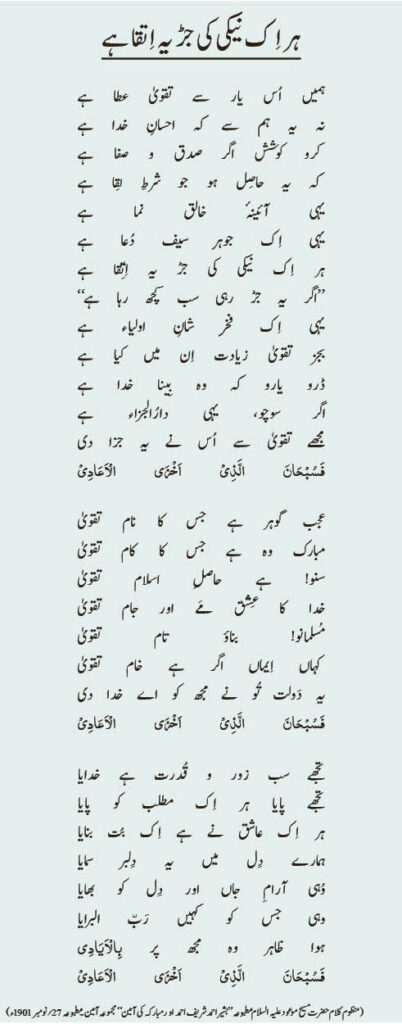 ہر اِک نیکی کی جڑ یہ اِتقا ہے
ہمیں اُس یار سے تقویٰ عطا ہے
نہ یہ ہم سے کہ احسانِ خدا ہے
کرو کوشش اگر صدق و صفا ہے
کہ یہ حاصِل ہو جو شرطِ لِقا ہے
یہی آئینۂ خالق نما ہے
یہی اِک جوہرِ سیفِ دُعا ہے
ہر اِک نیکی کی جڑ یہ اِتِّقا ہے
”اگر یہ جڑ رہی سب کچھ رہا ہے“
یہی اِک فخرِ شانِ اولیاء ہے
بجز تقویٰ زیادت اِن میں کیا ہے
ڈرو یارو کہ وہ بِینا خدا ہے
اگر سوچو، یہی دارُالجزاء ہے
مجھے تقویٰ سے اُس نے یہ جزا دی
فَسُبْحَانَ الَّذِیْ اَخْزَی الْاَعَادِیْ
عجب گوہر ہے جس کا نام تقویٰ
مبارک وہ ہے جس کا کام تقویٰ
سنو! ہے حاصلِ اسلام تقویٰ
خدا کا عِشق مَے اور جام تقویٰ
مُسلمانو! بناؤ تام تقویٰ
کہاں اِیماں اگر ہے خام تقویٰ
یہ دَولت تُو نے مجھ کو اے خدا دی
فَسُبْحَانَ الَّذِیْ اَخْزَی الْاَعَادِیْ
تجھے سب زور و قُدرت ہے خدایا
تجھے پایا ہر اِک مطلب کو پایا
ہر اِک عاشق نے ہے اِک بُت بنایا
ہمارے دِل میں یہ دِلبر سمایا
وُہی آرامِ جاں اور دِل کو بھایا
وہی جس کو کہیں رَبّ البرایا
ہوا ظاہر وہ مجھ پر بِالْاَیَادِی
فَسُبْحَانَ الَّذِیْ اَخْزَی الْاَعَادِیْ
(منظوم کلام حضرت مسیح موعود علیہ السلام مطبوعہ ”بشیر احمد شریف احمد اور مبارکہ کی آمین“ مجموعہ آمین مطبوعہ 27؍نومبر 1901ء)